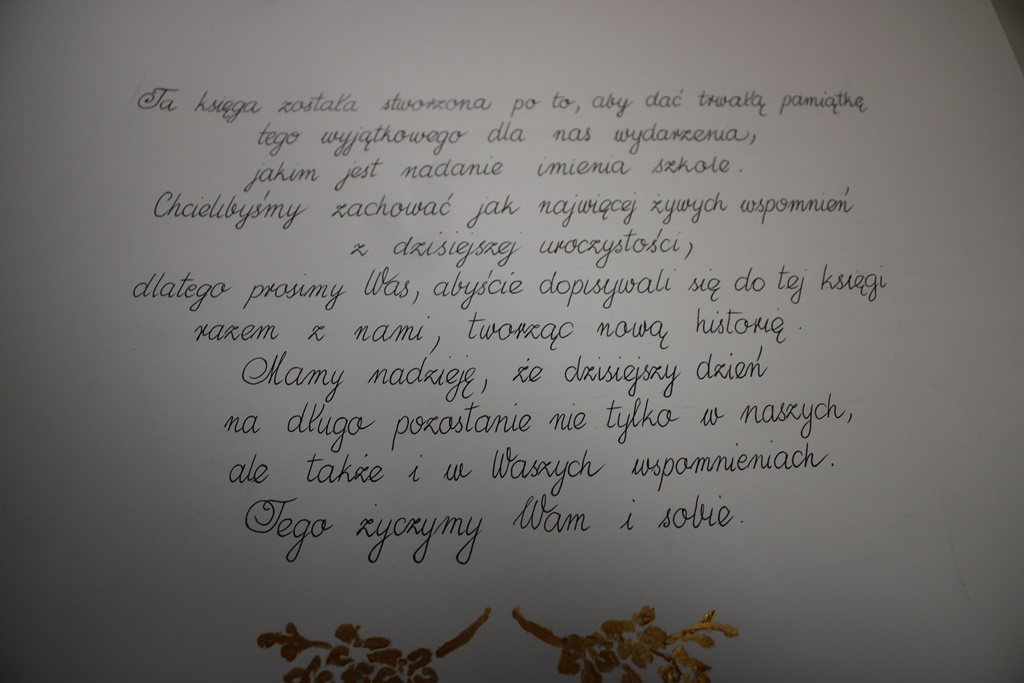 Ta księga została stworzona po to, aby dać trwałą pamiątkę
tego wyjątkowego dla nas wydarzenia,
jakim jest nadanie imienia szkole.
Chcielibyśmy zachować jak najwięcej żywych wspomnień
z dzisiejszej uroczystości,
dlatego prosimy Was, abyście dopisywali się do tej księgi
razem z nami, tworząc nową historię.
Mamy nadzieję, że dzisiejszy dzień
na długo pozostanie nie tylko w naszych,
ale także i w Waszych wspomnieniach.
Tego życzymy Wam i sobie.